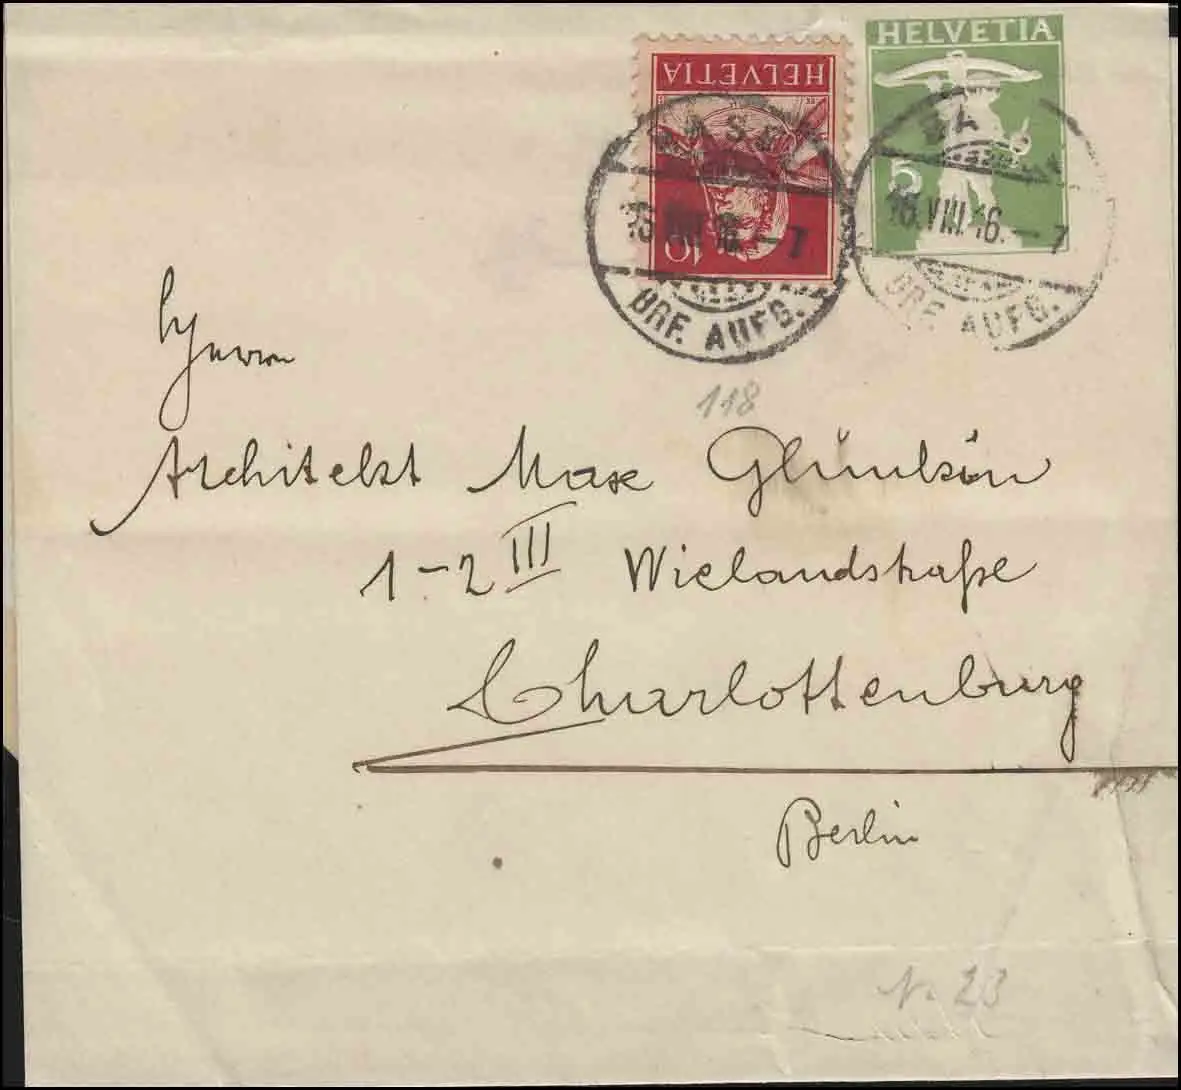 HELVETIA
10
HELVETIA
5
BASEL
16.VIII.16.–7
BRF. AUFG.
BASEL
16.VIII.16.–7
BRF. AUFG.
Herrn
118
Architekt Max Glünkin
1-2 III Wielandstraße
Charlottenburg
Berlin
N. 23